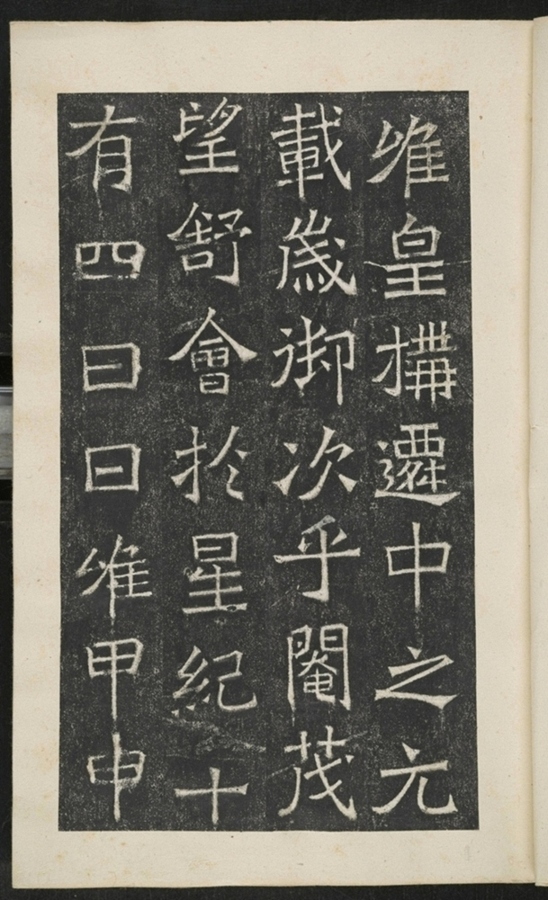 唯皇搆遷中之元
載歲御次乎閹茂
望舒會於星紀十
有四日日維甲申